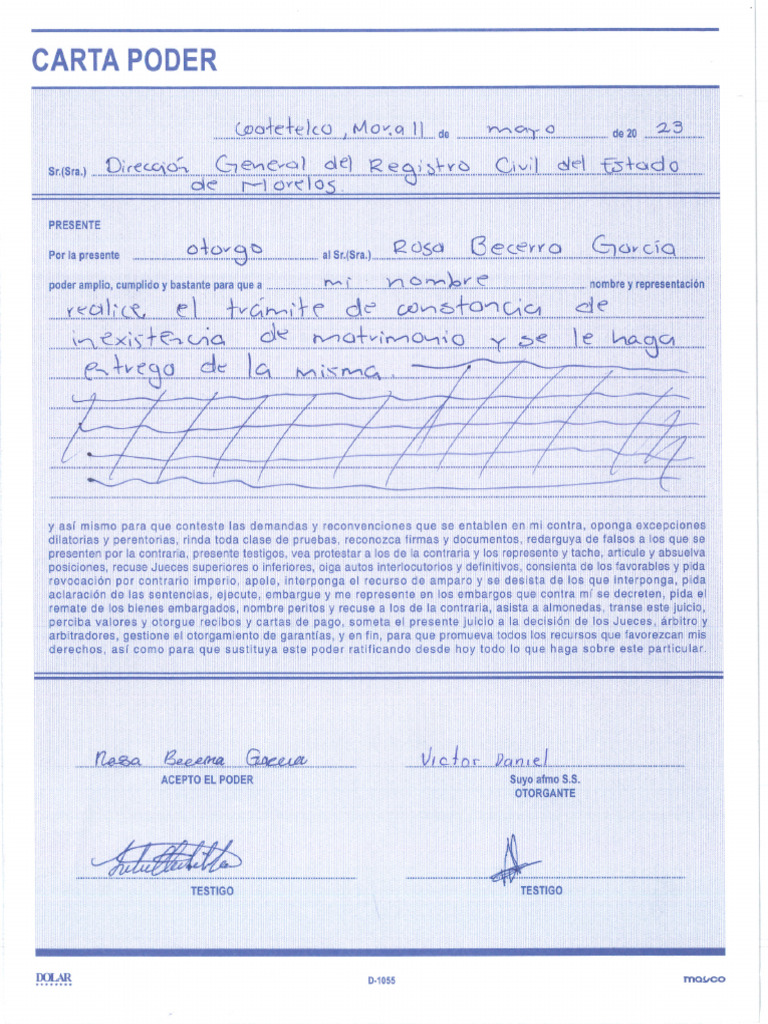 CARTA PODER
Coatetelco, Mor. a 11 de mayo de 20 23
Sr.(Sra.) Dirección General del Registro Civil del Estado
de Morelos.
PRESENTE
Por la presente otorgo al Sr.(Sra.) Rosa Becerra García
poder amplio, cumplido y bastante para que a mi nombre nombre y representación
realice el trámite de constancia de
inexistencia de matrimonio y se le haga
entrega de la misma.
y así mismo para que conteste las demandas y reconvenciones que se entablen en mi contra, oponga excepciones
dilatorias y perentorias, rinda toda clase de pruebas, reconozca firmas y documentos, redarguya de falsos a los que se
presenten por la contraria, presente testigos, vea protestar a los de la contraria y los represente y tache, articule y absuelva
posiciones, recuse Jueces superiores o inferiores, oiga autos interlocutorios y definitivos, consienta de los favorables y pida
revocación por contrario imperio, apele, interponga el recurso de amparo y se desista de los que interponga, pida
aclaración de las sentencias, ejecute, embargue y me represente en los embargos que contra mí se decreten, pida el
remate de los bienes embargados, nombre peritos y recuse a los de la contraria, asista a almonedas, transe este juicio,
perciba valores y otorgue recibos y cartas de pago, someta el presente juicio a la decisión de los Jueces, árbitro y
arbitradores, gestione el otorgamiento de garantías, y en fin, para que promueva todos los recursos que favorezcan mis
derechos, así como para que sustituya este poder ratificando desde hoy todo lo que haga sobre este particular.
Rosa Becerra Garcia Victor Daniel
ACEPTO EL PODER Suyo afmo S.S.
OTORGANTE
TESTIGO TESTIGO
DOLAR D-1055 masco